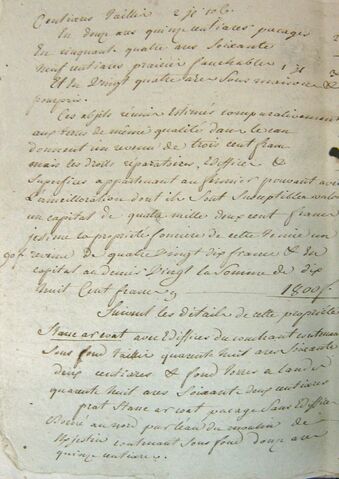 Centiares Taillis 2 je 10 C.
En douze ares quinze centiares pacages
En cinquant quatre ares Soixante
neuf centiares prairie fauchable 1 je
Et En Vingt quatre are Sous maison &
pourpris.
Ces objets réunir Estimés comparativement
aux terres de même qualité dans le can
donnent un revenu de trois cent fran
mais les droits réparatoires, Edifices &
Superfices appartenant au fermier pouvant avec
L'amelioration dont ils Sont Susceptibles valoir
un capital de quatre mille douze cent francs
jestime la propriété fonciere de cette Tenue un
90f revenu de quatre Vingt dix francs & En
capital au denier Vingt la Somme de dix
huit Cent francs 1800f.
Suivent les détails de cette propriété
Stanc ar coat avec Edifices du couchant contenant
Sous fond Taillis quarent huit ares Soixante
deux centiares & fond terres a lande
quarente huit ares Soixante deux centiares
prat Stanc ar coat pacage Sans Edifice
Borné au nord par leau du moulin de
contenant sous fond douze are
quinze centiares.